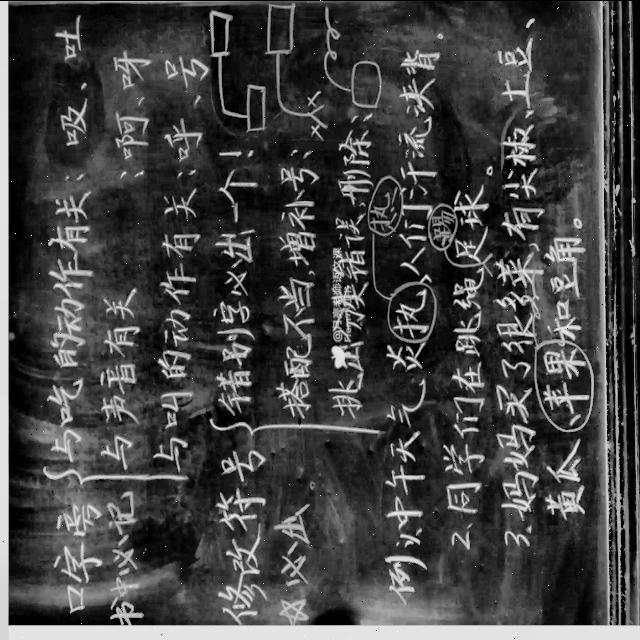 口字旁 与吃的动作有关：吸、吐
书中必记 与声音有关：啊、呀
与叫的动作有关：呼、号
修改符号 错别字必出一个！
☆必出 搭配不当，增补号；
挑出 错误，删除；
例1.中午天气炎执热、人们汗流浃背。
2.同学们在跳绳踢足球。
3.妈妈买了很多菜，有尖椒、土豆、
黄瓜、苹果和豆角。